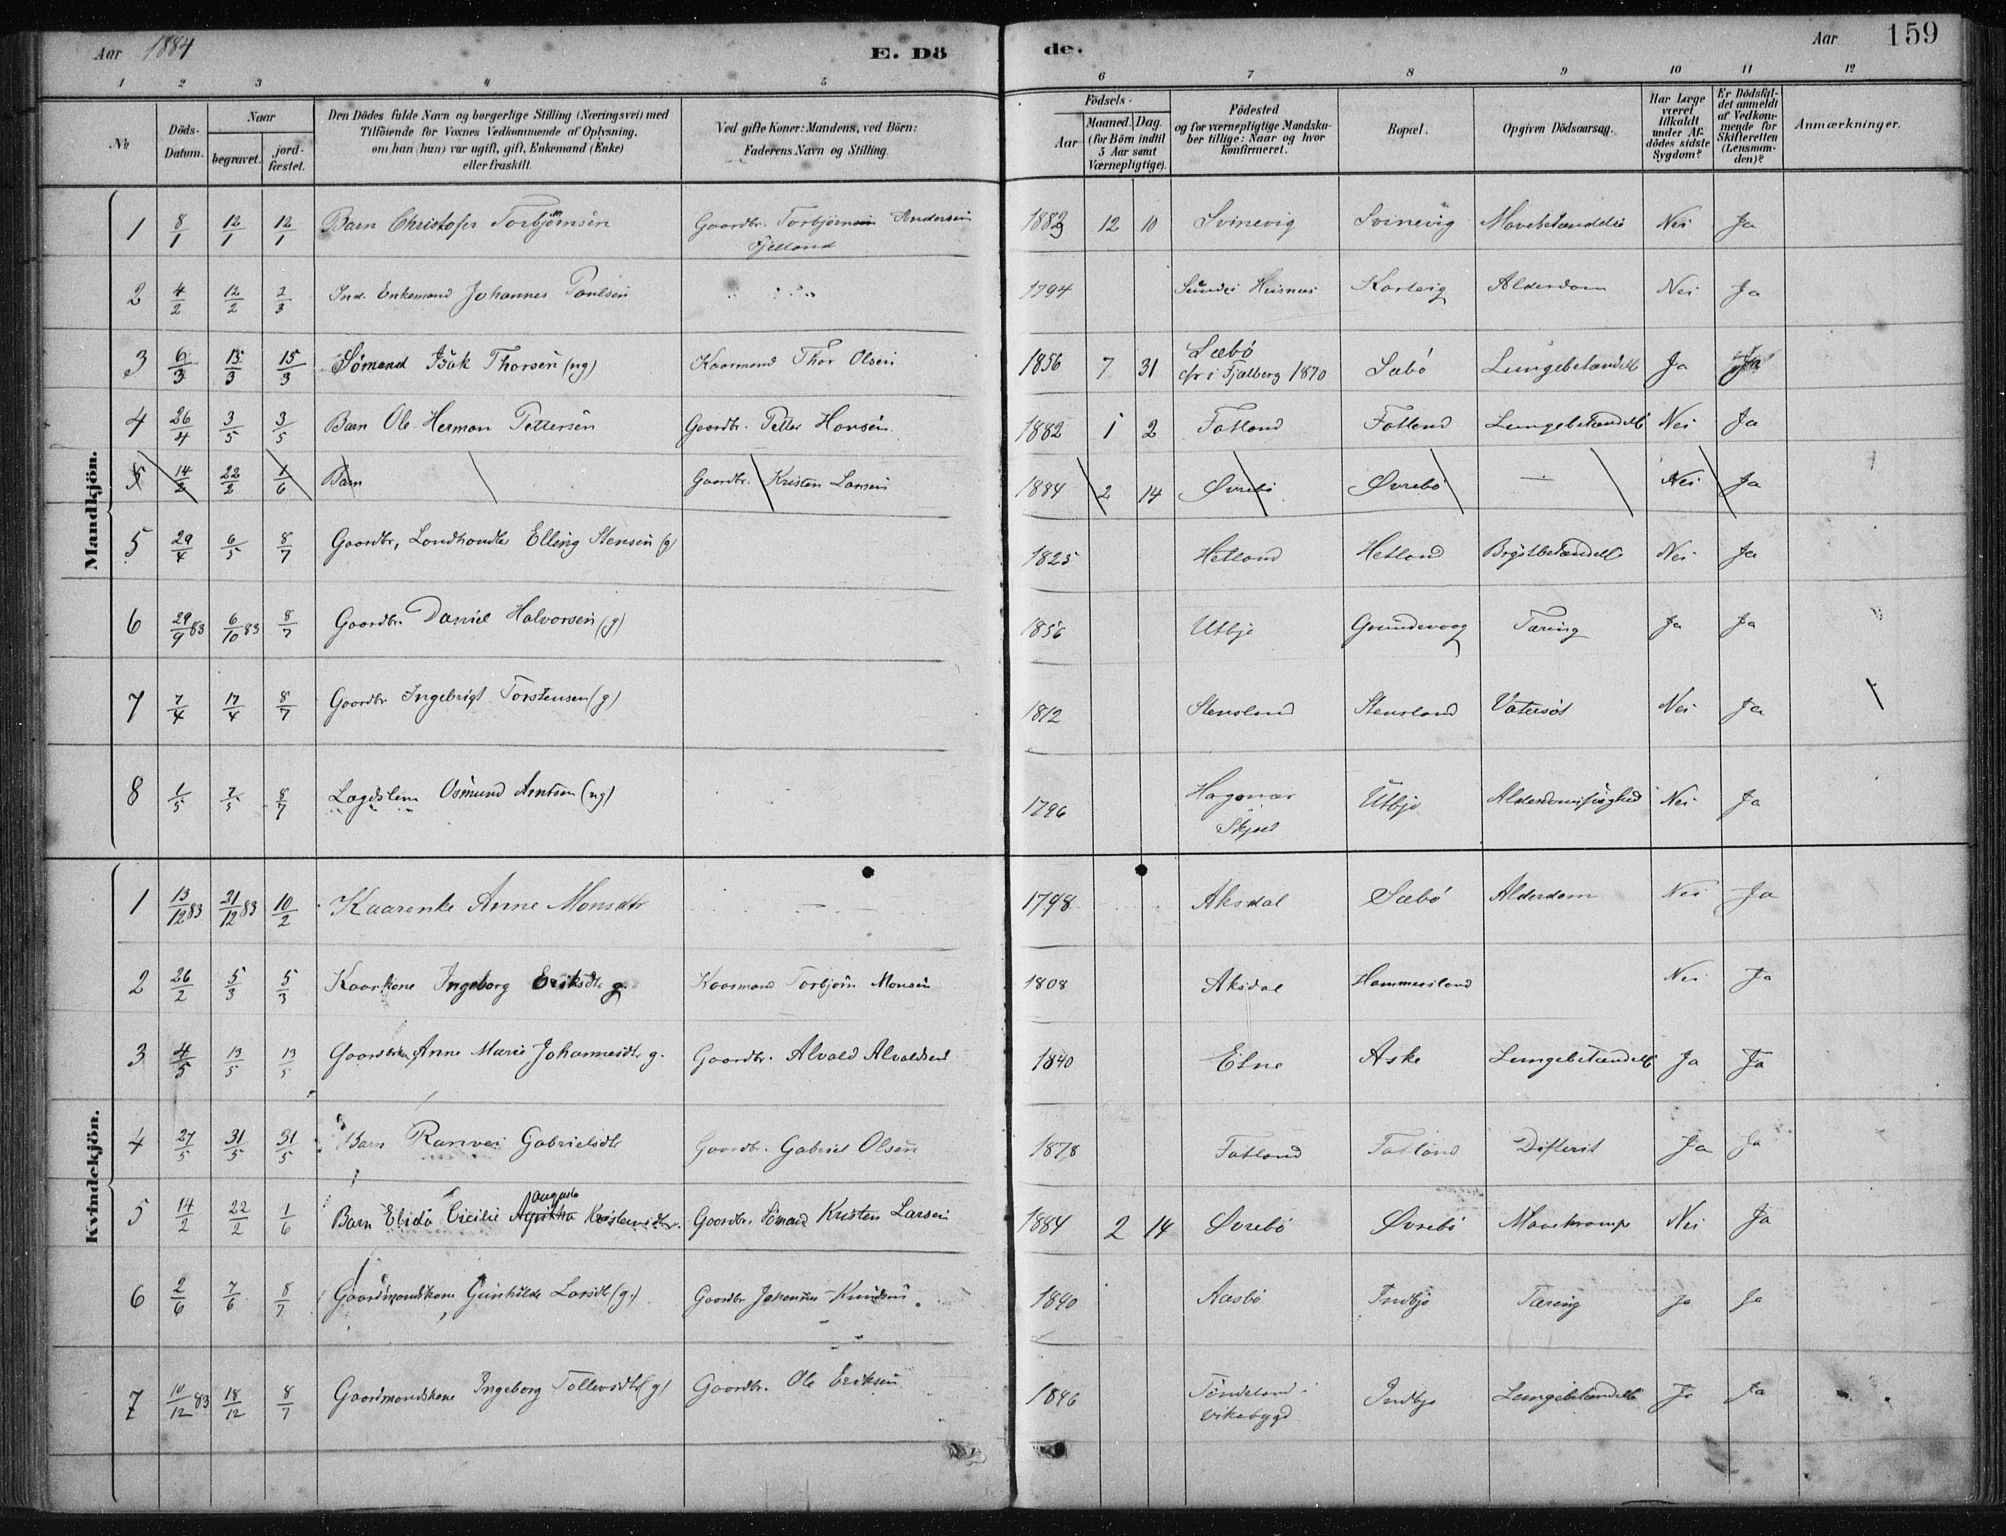 Aar 1884 E. Dö de. Aar 159
1 2 3 4 5 6 7 8 9 10 11 12
№ Döds-Datum. Naar begravet. jordfæstet. Den Dödes fulde Navn og borgerlige Stilling (Næringsvei) med Tilföiende for Voxnes Vedkommende af Oplysning, om han (hun) var ugift, gift, Enkemand (Enke) eller fraskilt. Ved gifte Koner: Mandens, ved Börn: Faderens Navn og Stilling. Födsels- Aar Maaned. Dag. (for Börn indtil 5 Aar samt Værnepligtige). Födested og for værnepligtige Mandskaber tillige: Naar og hvor konfirmeret. Bopæl. Opgiven Dödsaarsag. Har Læge været tilkaldt under Afdödes sidste Sygdom? Er Dödsfaldet anmeldt af Vedkommende for Skifteretten (Lensmanden)? Anmærkninger.
Mandkjön.
1 8/1 12/1 12/1 Barn Christofer Torbjørnsen Gaardbr. Torbjørn Andersen 1883 12 10 Svinevig Svinevig Nei Ja
Fjelland
2 4/2 12/2 2/3 Ind. Enkemand Johannes Poulsen 1794 Alderdom Nei Ja
3 6/3 15/3 15/3 Sømand Isak Thorsen (ug) Kaarmand Thor Olsen 1856 7 31 Sæbö Sæbö Lungebetændelse Ja Ja
cfr i Fjælberg 1870
4 26/4 3/5 3/5 Barn Ole Herman Pettersen Gaardbr. Petter Hansen 1882 1 2 Fatland Fatland Lungebetændelse Nei Ja
5 14/2 22/2 1/6 Barn Gaardbr. Kristen Larsen 1884 2 14 Øvrebö Øvrebö — Nei Ja
5 29/4 6/5 8/7 Gaardbr, Landhandler Elling Stensen (g) 1825 Hetland Hetland Brystbetændelse Nei Ja
6 29/9 83 6/10 83 8/7 Gaardbr. Daniel Halvorsen (g) 1856 Utbjo Grundevaag Tæring Ja Ja
7 7/4 17/4 8/7 Gaardbr Ingebrigt Torstensen (g) 1812 Stensland Stensland Vatersot Nei Ja
8 1/5 7/5 8/7 Lægdslem Osmund Arntsen (ug) 1796 Utbjo Nei Ja
Kvindekjön.
1 13/12 83 21/12 83 10/2 Kaarenke Anne Monsdtr — 1798 Aksdal Sæbö Alderdom Nei Ja
2 26/2 5/3 5/3 Kaarkone Ingeborg Eriksdtr g. Kaarmand Torbjørn Monsen 1808 Aksdal Hammersland Nei Ja
3 4/5 13/5 13/5 Anne Marie Johannesdtr g. Gaardbr. Alvald Alvaldsen 1840 Etne Aske Lungebetændelse Ja Ja
4 27/5 31/5 31/5 Barn Ranvei Gabrielsdtr Gaardbr. Gabriel Olsen 1878 Fatland Fatland Difterit Ja Ja
Augusta
5 14/2 22/2 1/6 Barn Elida Cicilie Kristensdtr. Gaardbr. Sömand Kristen Larsen 1884 2 14 Øvrebö Øvrebö Mavekrampe Nei Ja
6 2/6 7/6 8/7 Gaardmandskone Gunhilde Larsdtr (g.) Gaardbr Johannes Knudsen 1840 Aasbö Indbjo Tæring Ja Ja
7 10/12 83 18/12 8/7 Gaardmandskone Ingeborg Tollevsdtr (g) Gaardbr. Ole Eriksen 1846 Töndeland i Indbjo Lungebetændelse Ja Ja
Vikebygd